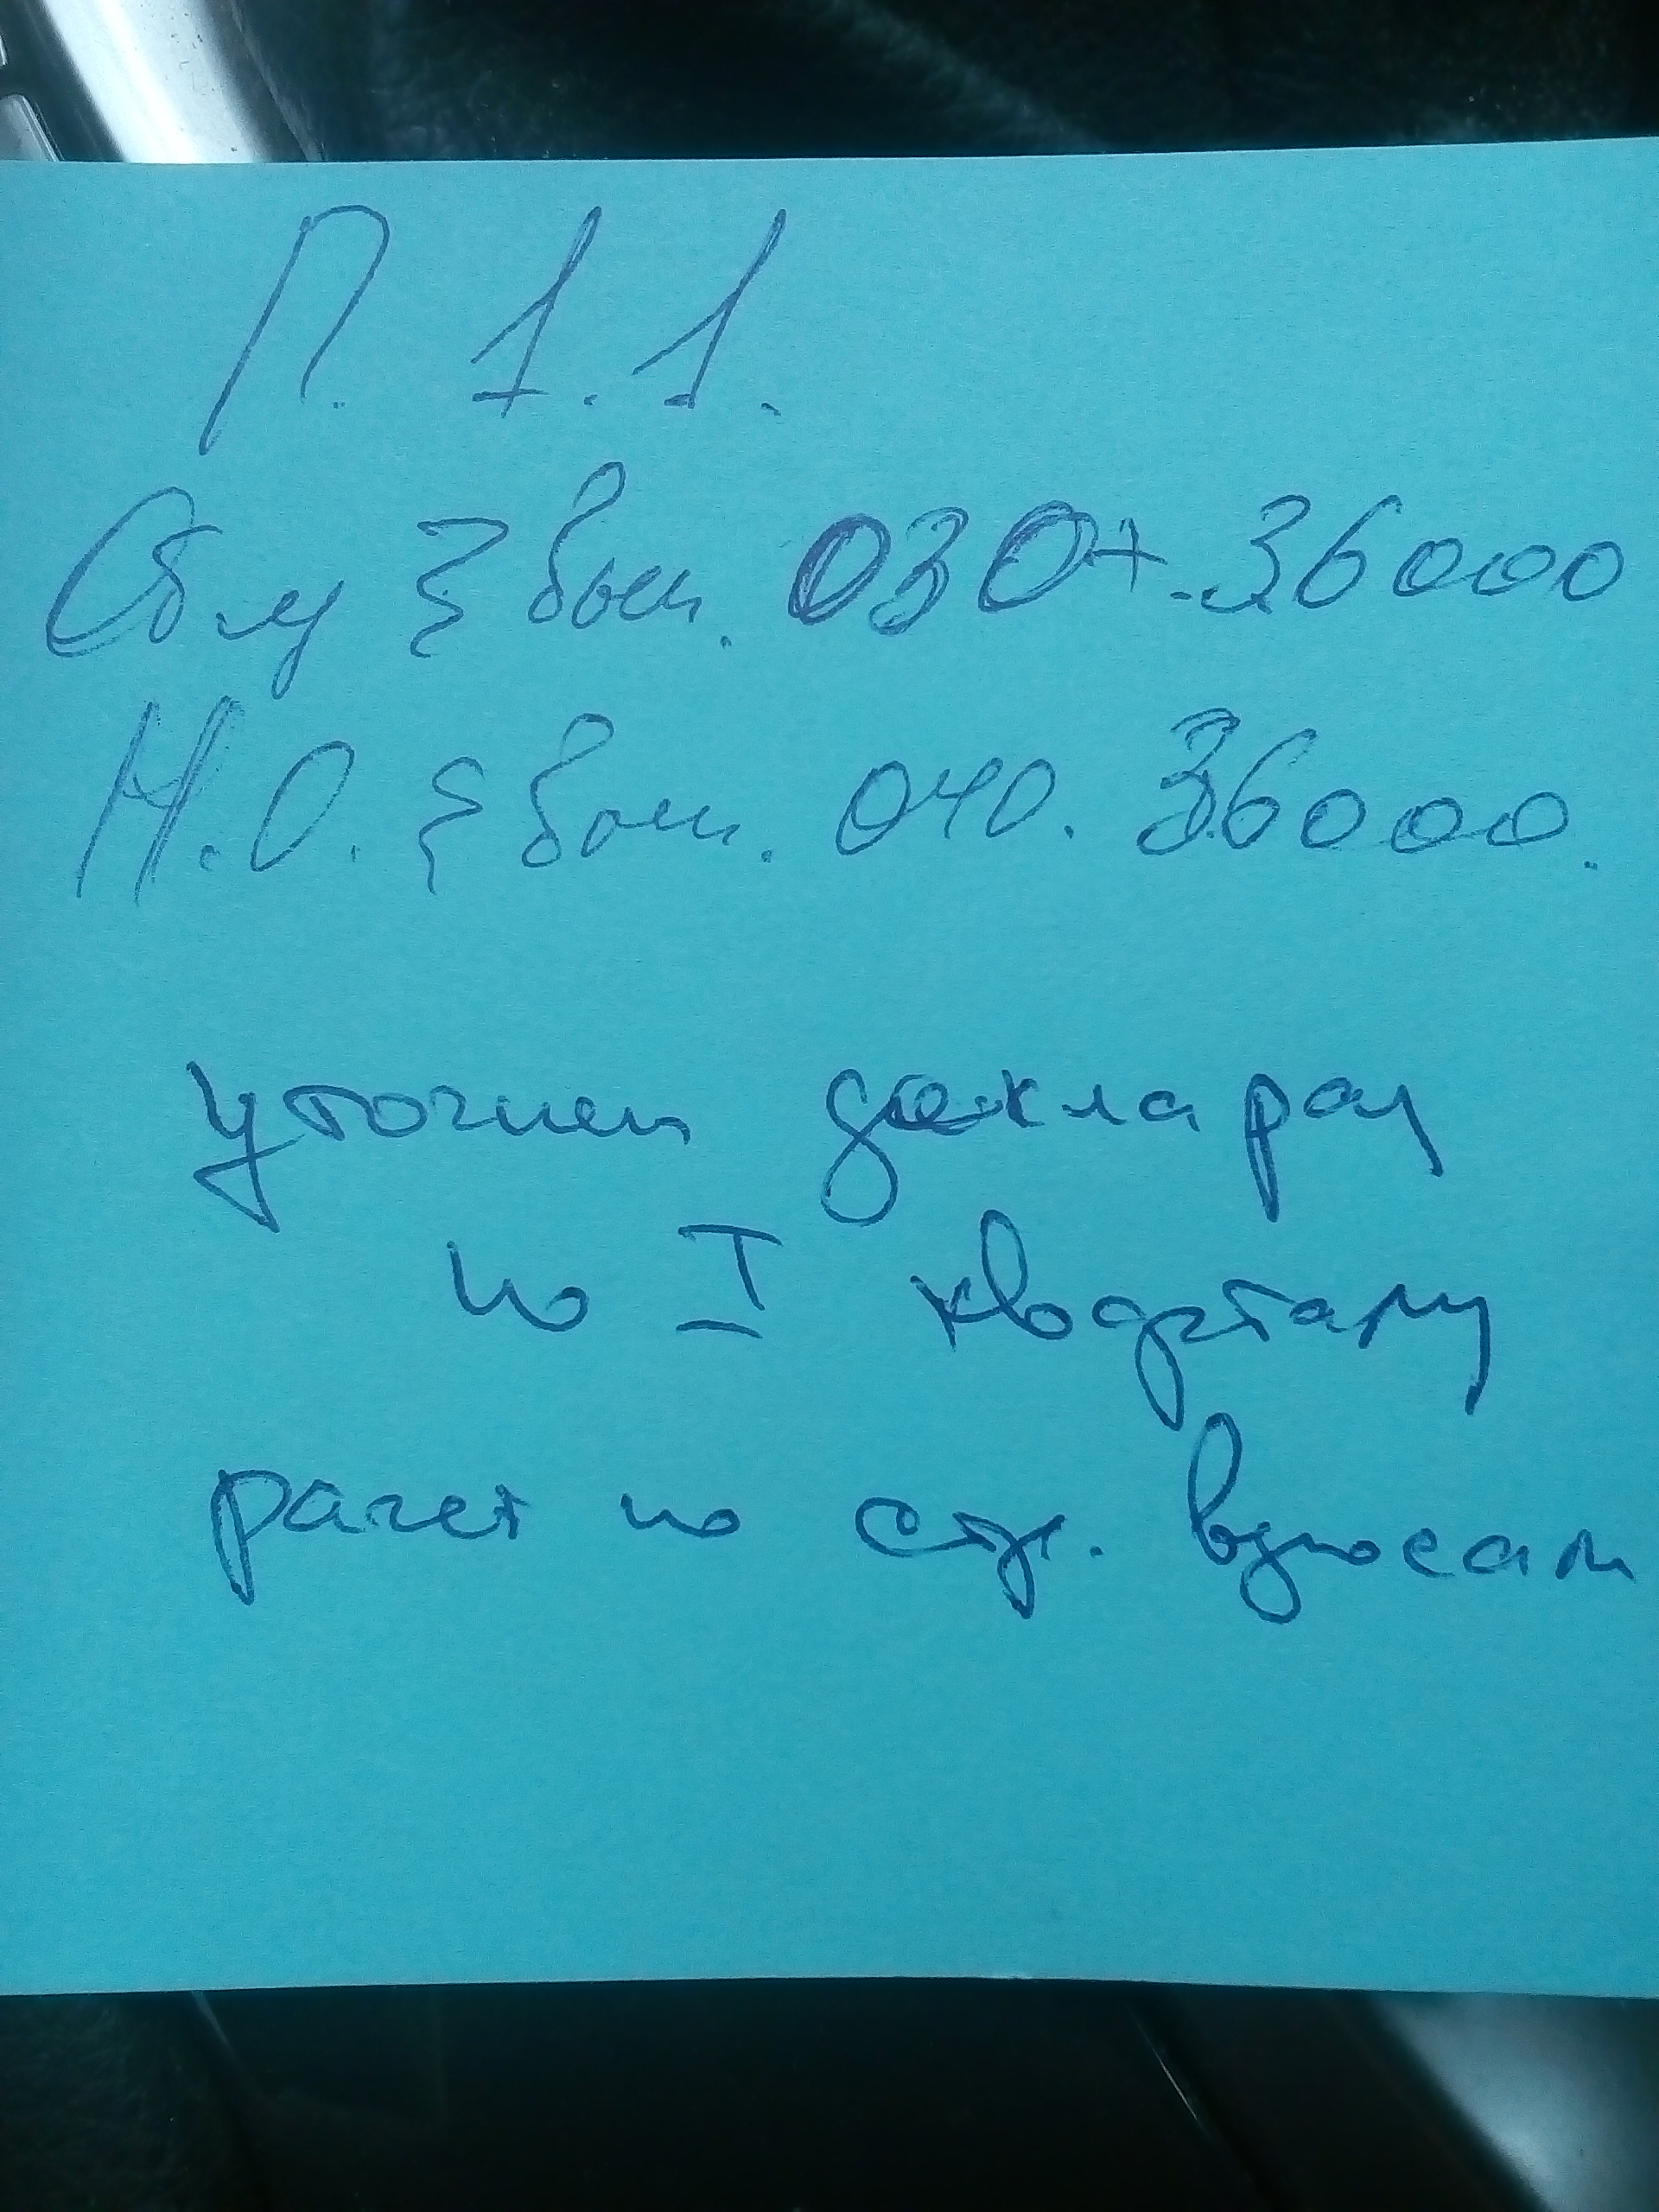 П. 1.1.
030+. 36000
Н.О. 040. 36000.
уточнен деклара
по I кварталу
расчет по стр. взносам